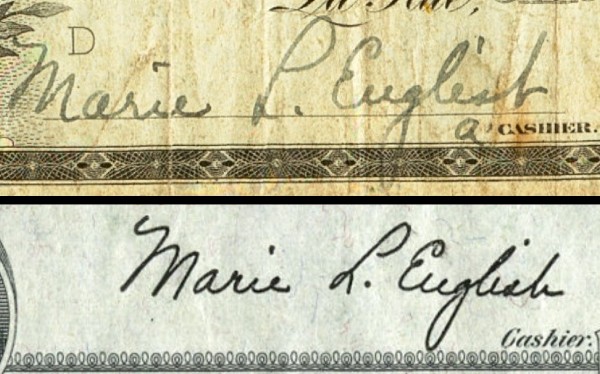 La Rue,
D
Marie L. English
a' CASHIER.
Marie L. English
Cashier.